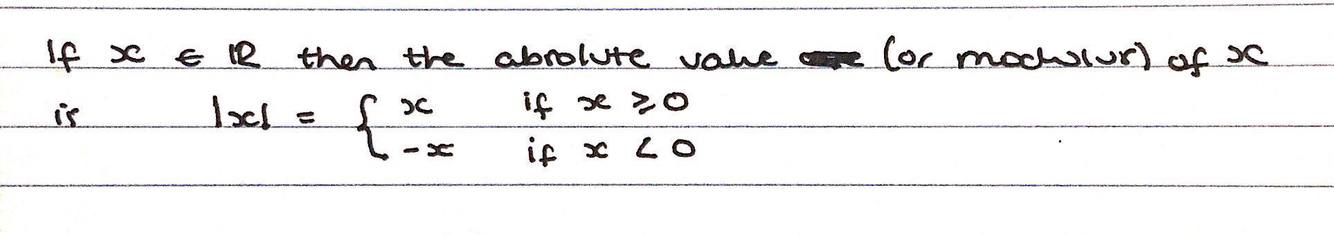 If x ∈ ℝ then the absolute value (or modulus) of x
is |x| = { x if x ≥ 0
-x if x < 0